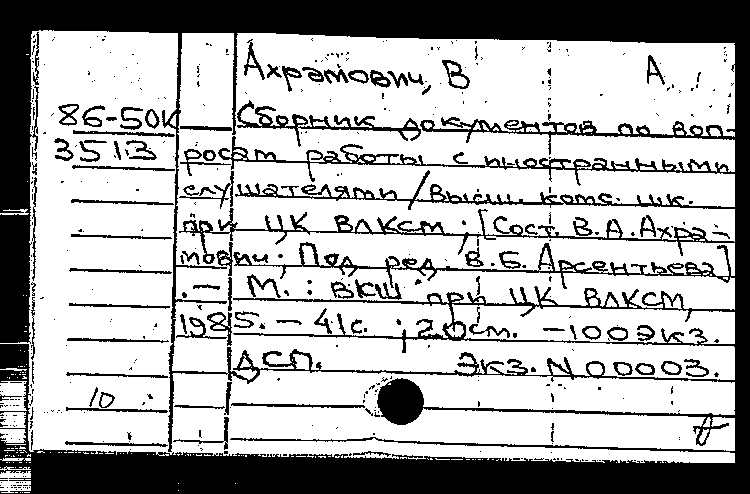 Ахрамович, В А.
86-50к Сборник документов по воп-
3513 росам работы с иностранными
слушателями / Высш. комс. шк.
при ЦК ВЛКСМ ; [Сост. В. А. Ахра-
мович ; Под ред. В. Б. Арсентьева]
. — М. : ВКШ при ЦК ВЛКСМ,
1985. — 41 с. ; 20 см. — 100 экз.
ДСП. Экз. N 00003.
10